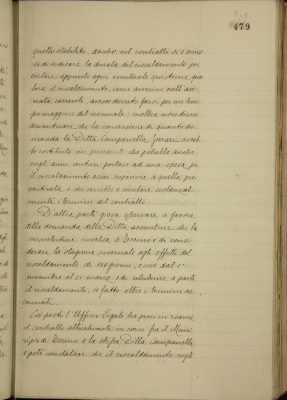 479
quello stabilito, dando nel contratto si è omes
so di indicare la durata del riscaldamento per
evitare appunto ogni eventuale questione qua
lora il riscaldamento, come avviene nell'an
nata corrente, avesse dovuto farsi per un tem
po maggiore del normale; inoltre non doversi
dimenticare che la concessione di quanto do
manda la Ditta Campanella, Jorari, avreb
be costituito un precedente che potrebbe anche
negli anni venturi portare ad una spesa per
il riscaldamento assai superiore a quella pre
ventivata, e che verrebbe a mutare sostanzial
mente i termini del contratto.
D'altra parte giova osservare, a favore
della domanda della Ditta assuntrice, che la
consuetudine invalsa a Torino è di consi
derare la stagione invernale agli effetti del
riscaldamento di 150 giorni, cioè dal 1°
novembre al 31 marzo, e di retribuire a parte
il riscaldamento, se fatto oltre i termini ac
cennati.
Ciò posto l'Ufficio Legale ha preso in esame
il contratto attualmente in corso fra il Muni
cipio di Torino e la stessa Ditta Campanella,
e potè constatare che il riscaldamento negli